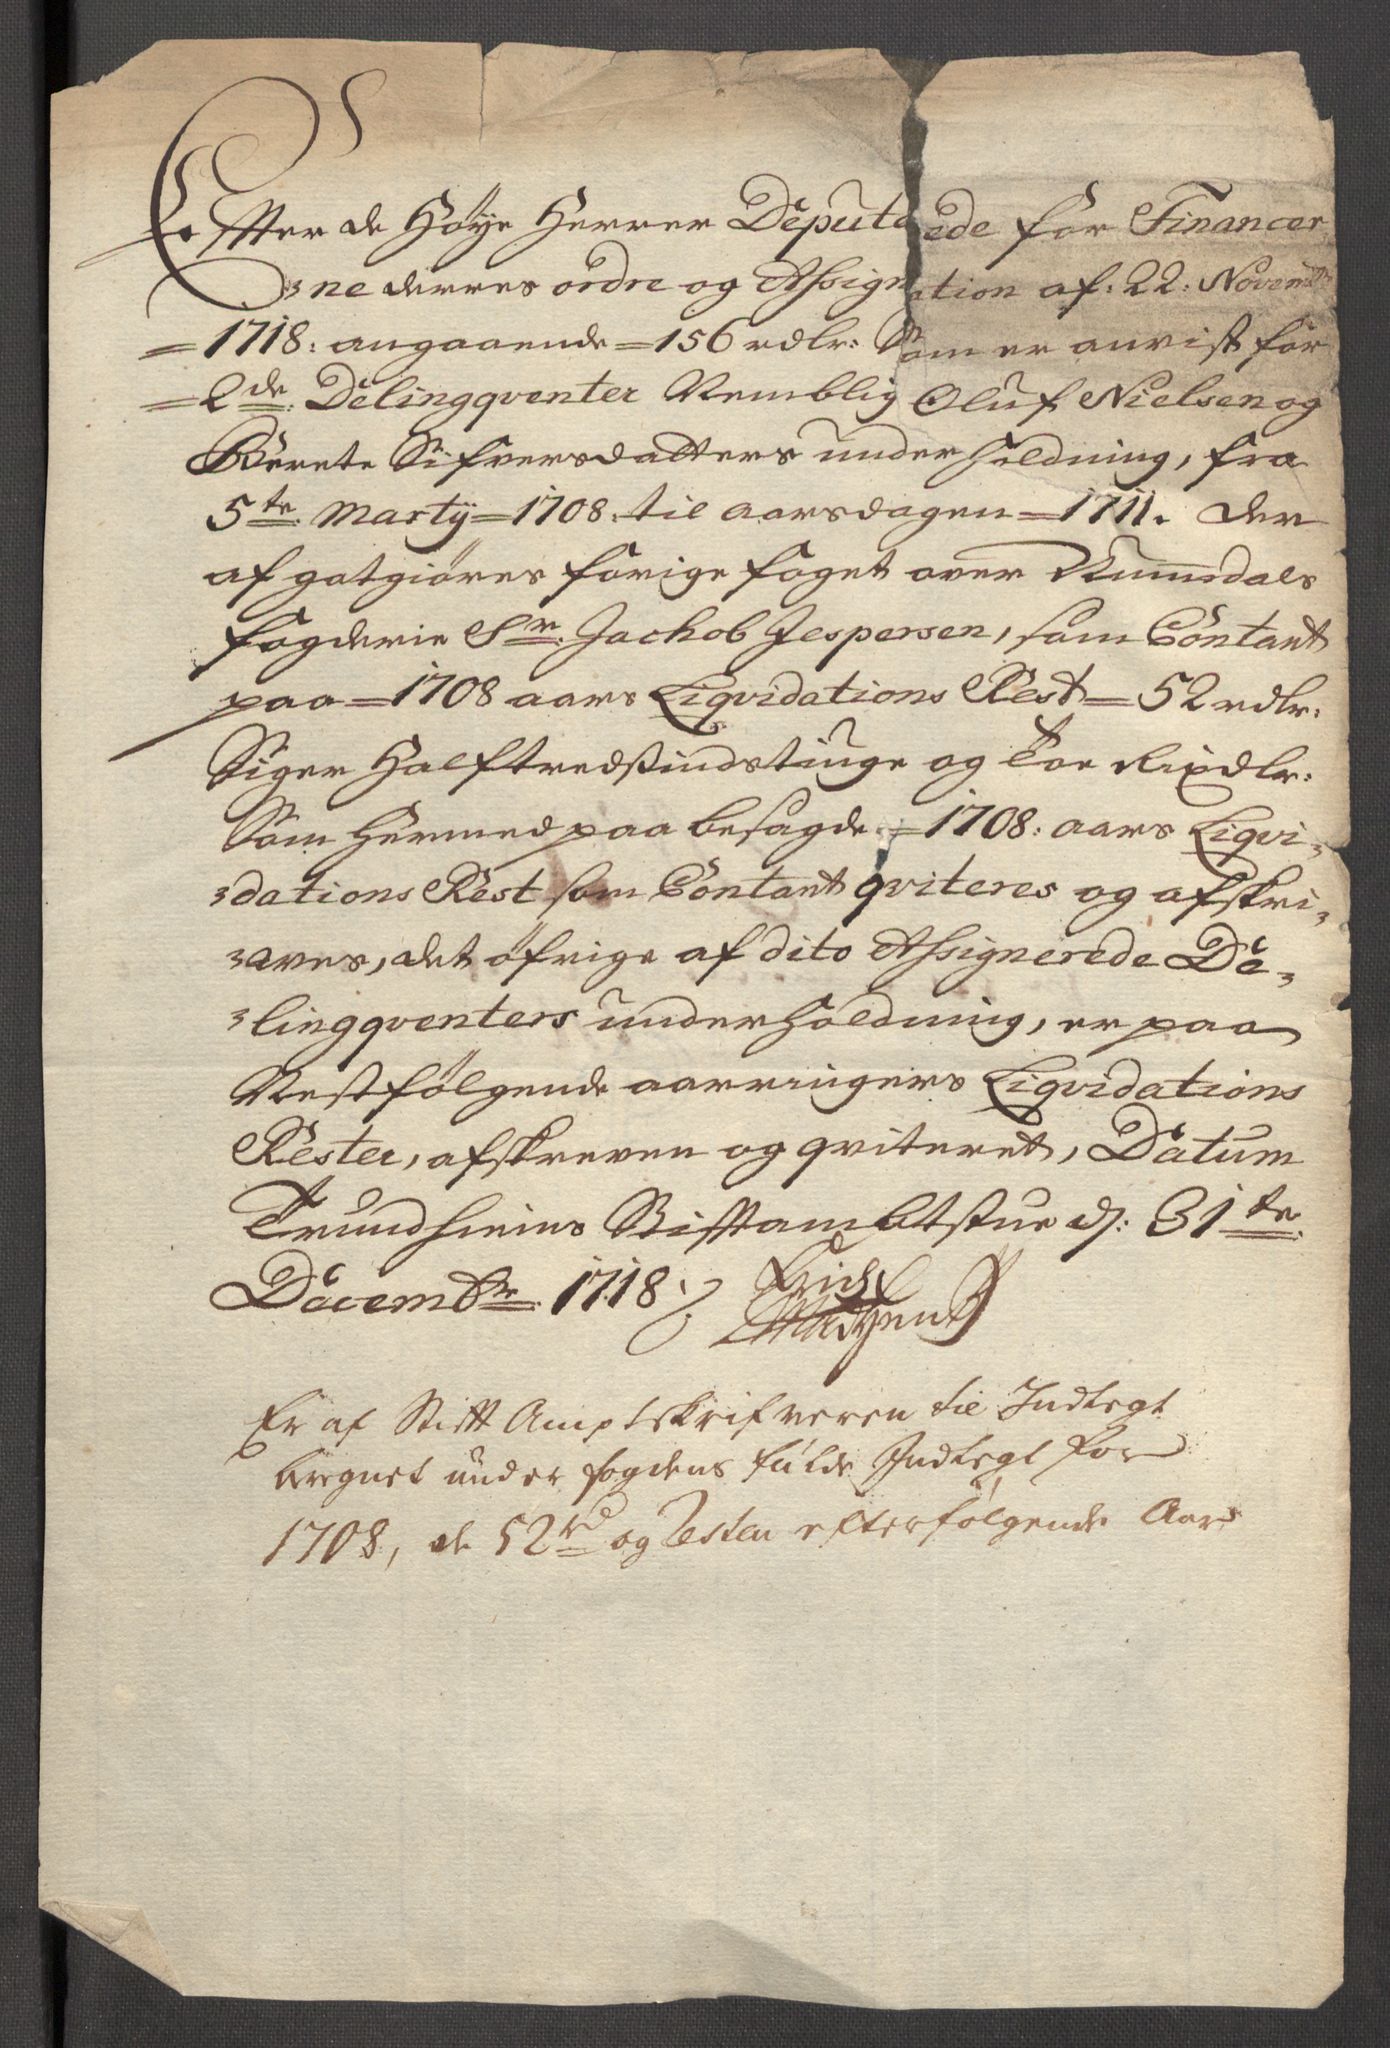 Effter de Høÿe Herrer Deputerede for Financer
=ne deres ordre og Assignation af: 22: Novembr
=1718: angaaende =156 rdlr: Som er anvist for
=2de Delingqventer Nemblig Oluf Nielsen og
Berete Sifversdatters underholdning, fra
5te Martÿ =1708. til aarsdagen =1711. der
af gotgiøres forige foget over Rumsdals
fogderie Sr. Jachob Jespersen, som Contant
paa =1708 aars Liqvidations Rest =52 rdlr:
Siger Halftredsindstiuge og Toe Rixdlr:
Som hermed paa besagde =1708: aars Liqvi=
=dations Rest som Contant qviteres og afskri=
=ves, det øfrige af dito Assignerede De=
=lingqventers underholdning, er paa
Nestfølgende aarringers Liqvidations
Rester, afskreven og qviteret, Datum
Trundhiems Stiftambtstue d: 31te
Decembr. 1718:
Er af Stift Amptskrifveren til Indtegt
beregnet under fogdens fulde Indtegt for
1708, de 52 rd og Resten efterfølgende Aar